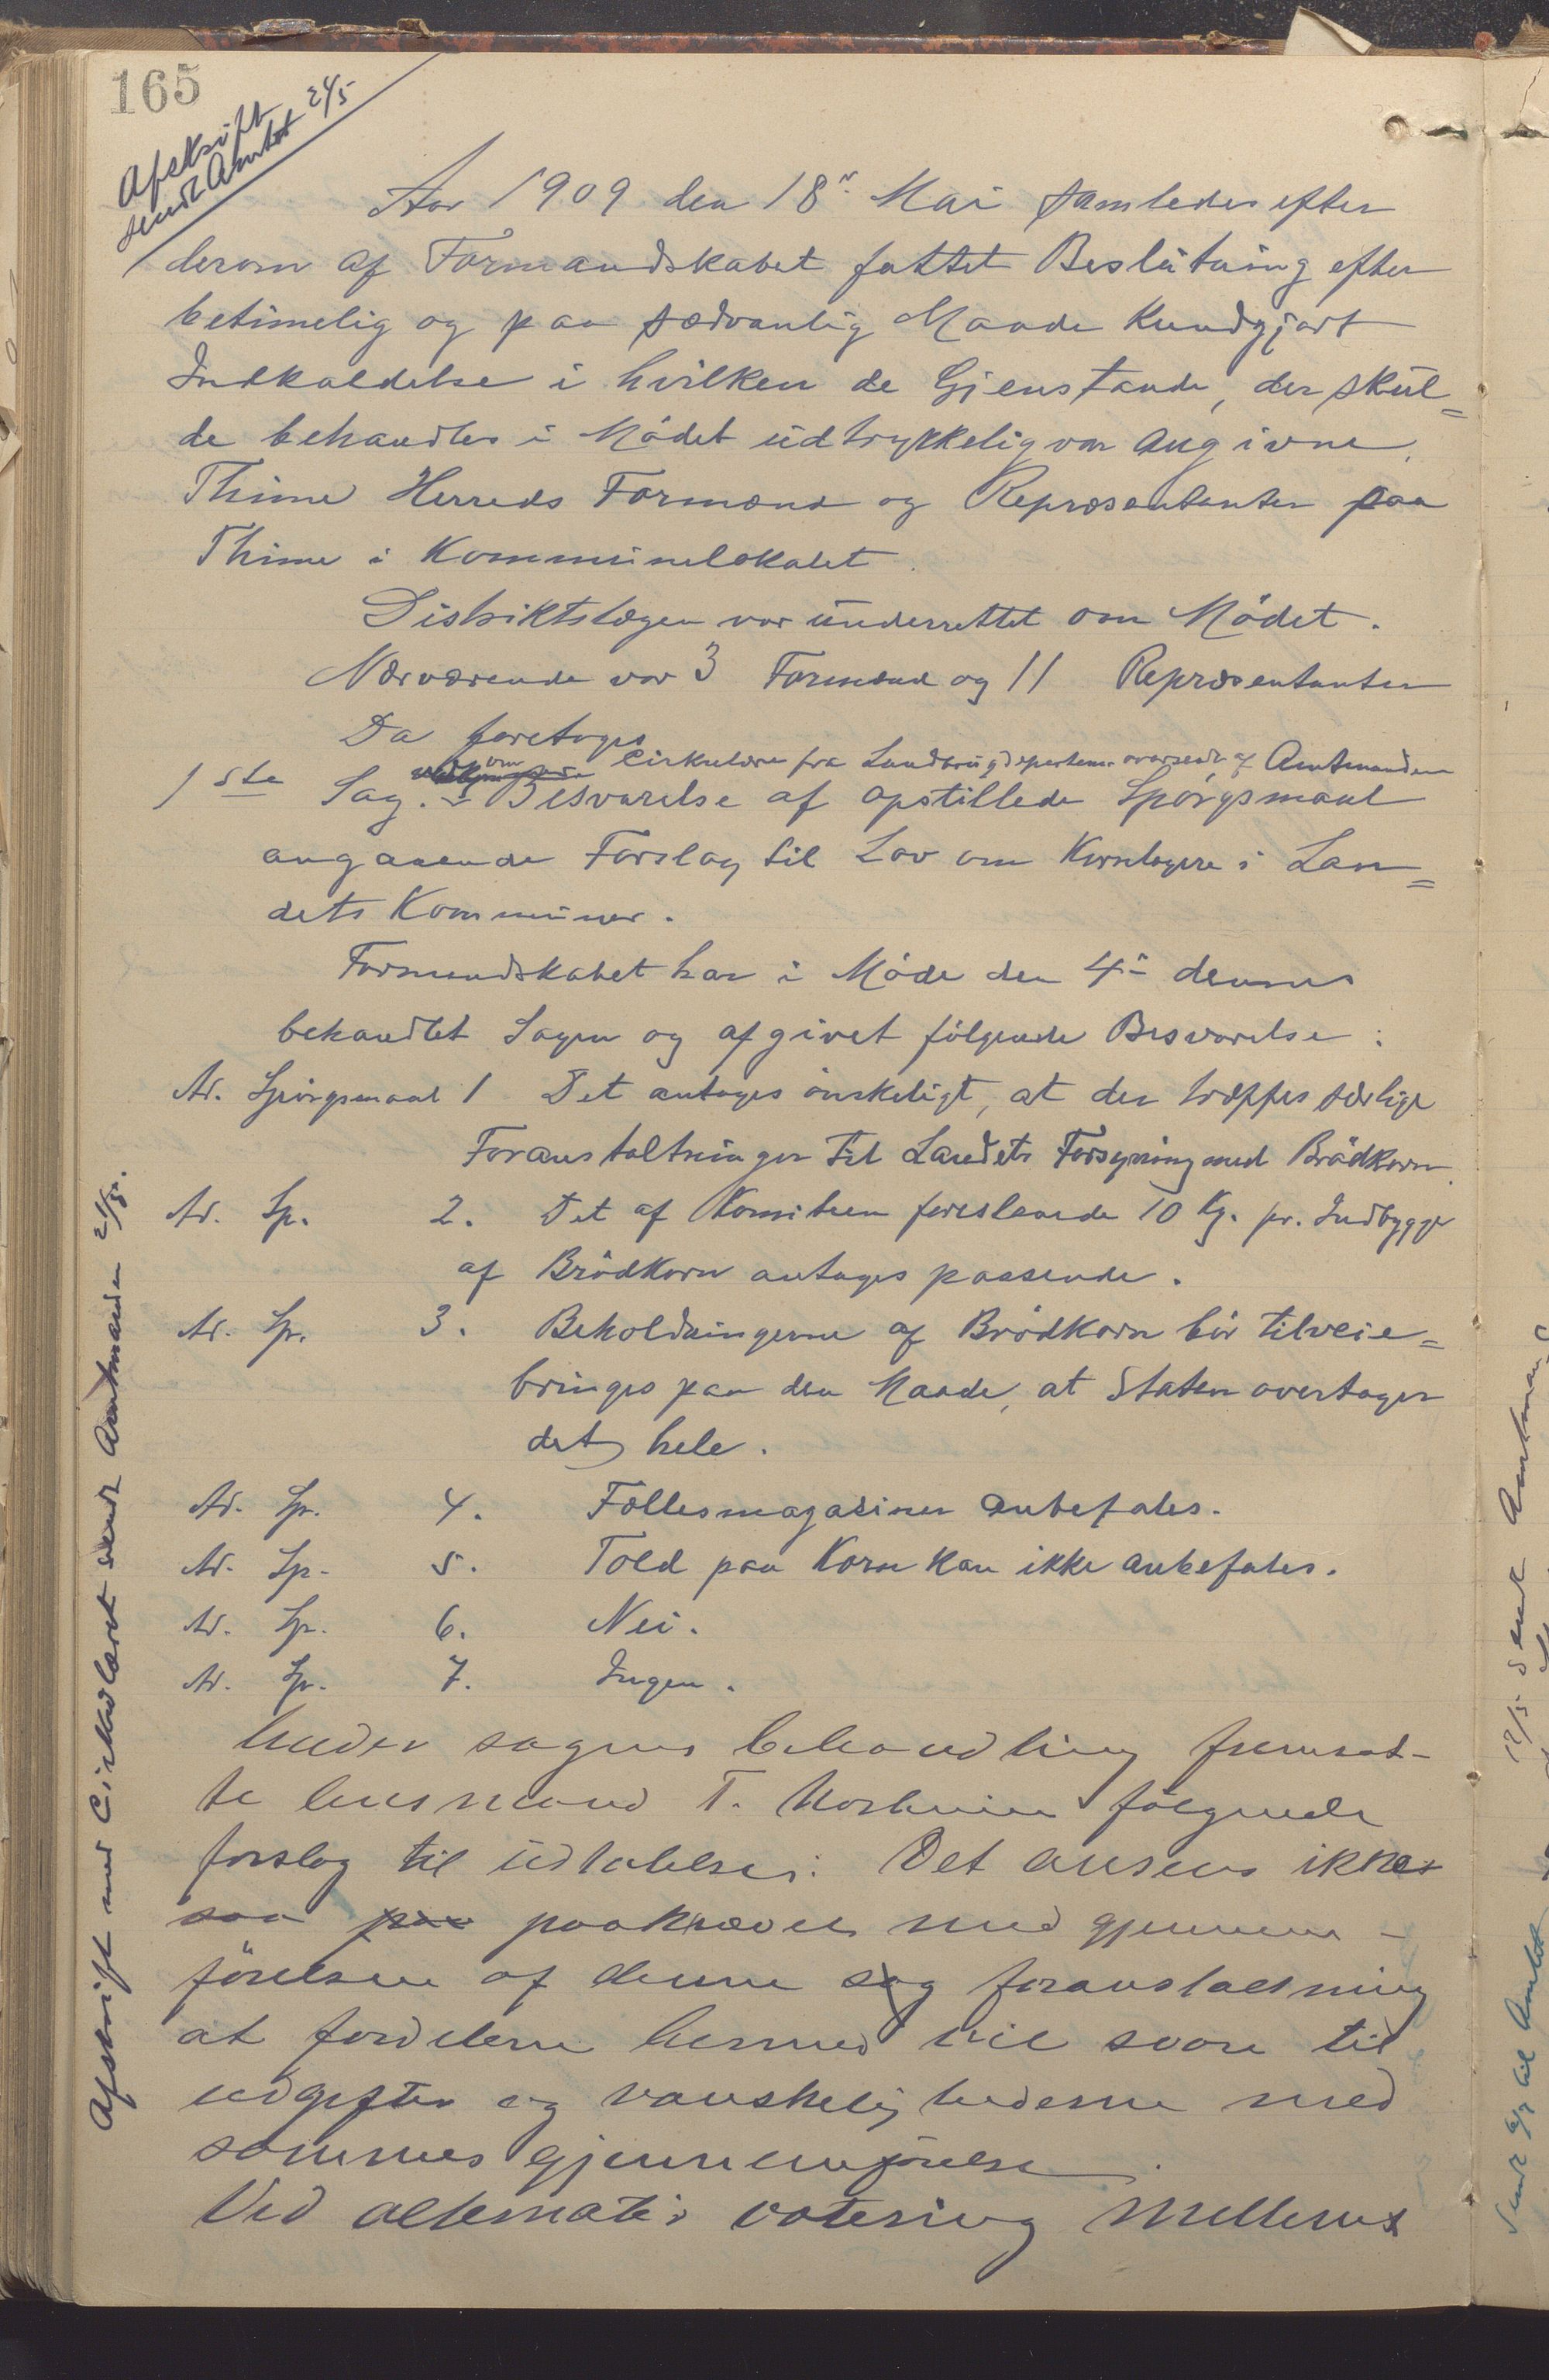 165
Afskrift
sendt Amtet 24/5
Aar 1909 den 18de Mai samledes efter
derom af Formandskabet fattet Beslutning efter
betimelig og paa sædvanlig Maade Kundgjort
Indkaldelse i hvilken de Gjenstande, der skul=
de behandles i Mödet udtrykkelig var angivne,
Thime Herreds Formænd og Repræsentanter paa
Thime i Kommunelokalet.
Distriktslægen var underrettet om Mödet.
Nærværende var 3 Formænd og 11 Repræsentanter
Da foretoges
om Cirkulære fra Landbrugsdepartem. oversendt af Amtmanden
1ste Sag. Besvarelse af opstillede Spörgsmaal
angaaende Forslag til Lov om Kornlagere i Lan=
dets Kommuner.
Formandskabet har i Möde den 4de dennes
behandlet Sagen og afgivet fölgende Besvarelse:
Ad. Spörgsmaal 1 Det antages önskeligt, at der træffes særlige
Foranstaltninger til Landets Forsyning med Brödkorn.
Ad. Sp. 2. Det af Komiteen foreslaaede 10 Kg. pr. Indbygger
af Brödkorn antages passende.
Ad. Sp. 3. Beholdningerne af Brödkorn bör tilveie=
bringes paa den Maade, at Staten overtager
det hele.
Ad. Sp. 4. Fællesmagasiner anbefales.
Ad. Sp. 5. Told paa Korn kan ikke anbefales.
Ad. Sp. 6. Nei.
Ad. Sp. 7. Ingen.
Under sagens behandling fremsat-
te lensmand T. følgende
forslag til udtalelse: Det ansees ikke
saa paa paakrævet med gjennem-
förelsen af denne sag foranstaltning
at fordelene hermed vil svare til
udgifter og vanskelighederne med
sammes gjennemförelse.
Ved alternativ votering mellem
Afskrift med Cirkulæret sendt Amtmanden 24/5.
12/5 sendt Amtman
Sendt til Amtet